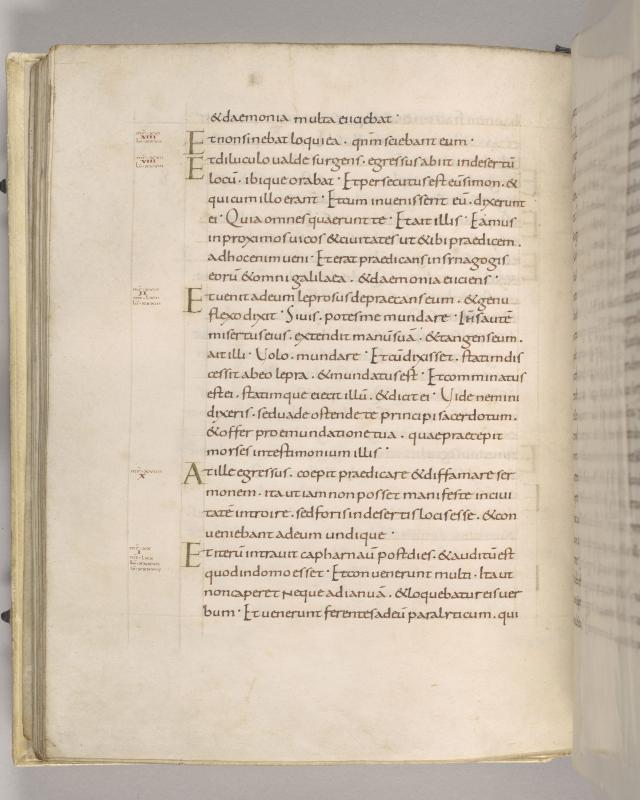 & daemonia multa eiciebat·
Et non sinebat loqui ea· qnm̄ sciebant eum·
Et diluculo ualde surgens· egressus abiit in desertū
locū· ibique orabat· Et persecutus est eū simon· &
qui cum illo erant· Et cum inuenissent eū· dixerunt
ei· Quia omnes quaerunt te· Et ait illis· Eamus
in proximos uicos & ciuitates ut & ibi praedicem·
ad hoc enim ueni· Et erat praedicans in synagogis
eorū & omni galilaea· & daemonia eiciens·
Et uenit ad eum leprosus depraecans eum· & genu
flexo dixit· Si uis· potes me mundare· Ihs̄ autē
misertus eius· extendit manū suā· & tangens eum·
ait illi· Uolo· mundare· Et cū dixisset· statim dis
cessit ab eo lepra· & mundatus est· Et comminatus
est ei· statimque eiecit illū· & dicit ei· Uide nemini
dixeris· sed uade ostende te principi sacerdotum·
& offer pro emundatione tua· quae praecepit
moyses in testimonium illis·
At ille egressus· coepit praedicare & diffamare ser
monem· ita ut iam non posset manifeste in ciui
tatē introire· sed foris in desertis locis esse· & con
ueniebant ad eum undique·
Et iterū intrauit capharnaū post dies· & auditū est
quod in domo esset· Et conuenerunt multi· Ita ut
non caperet neque ad ianuā· & loquebatur eis uer
bum· Et uenerunt ferentes ad eū paralyticum· qui
XIII
VIII
II
X
I